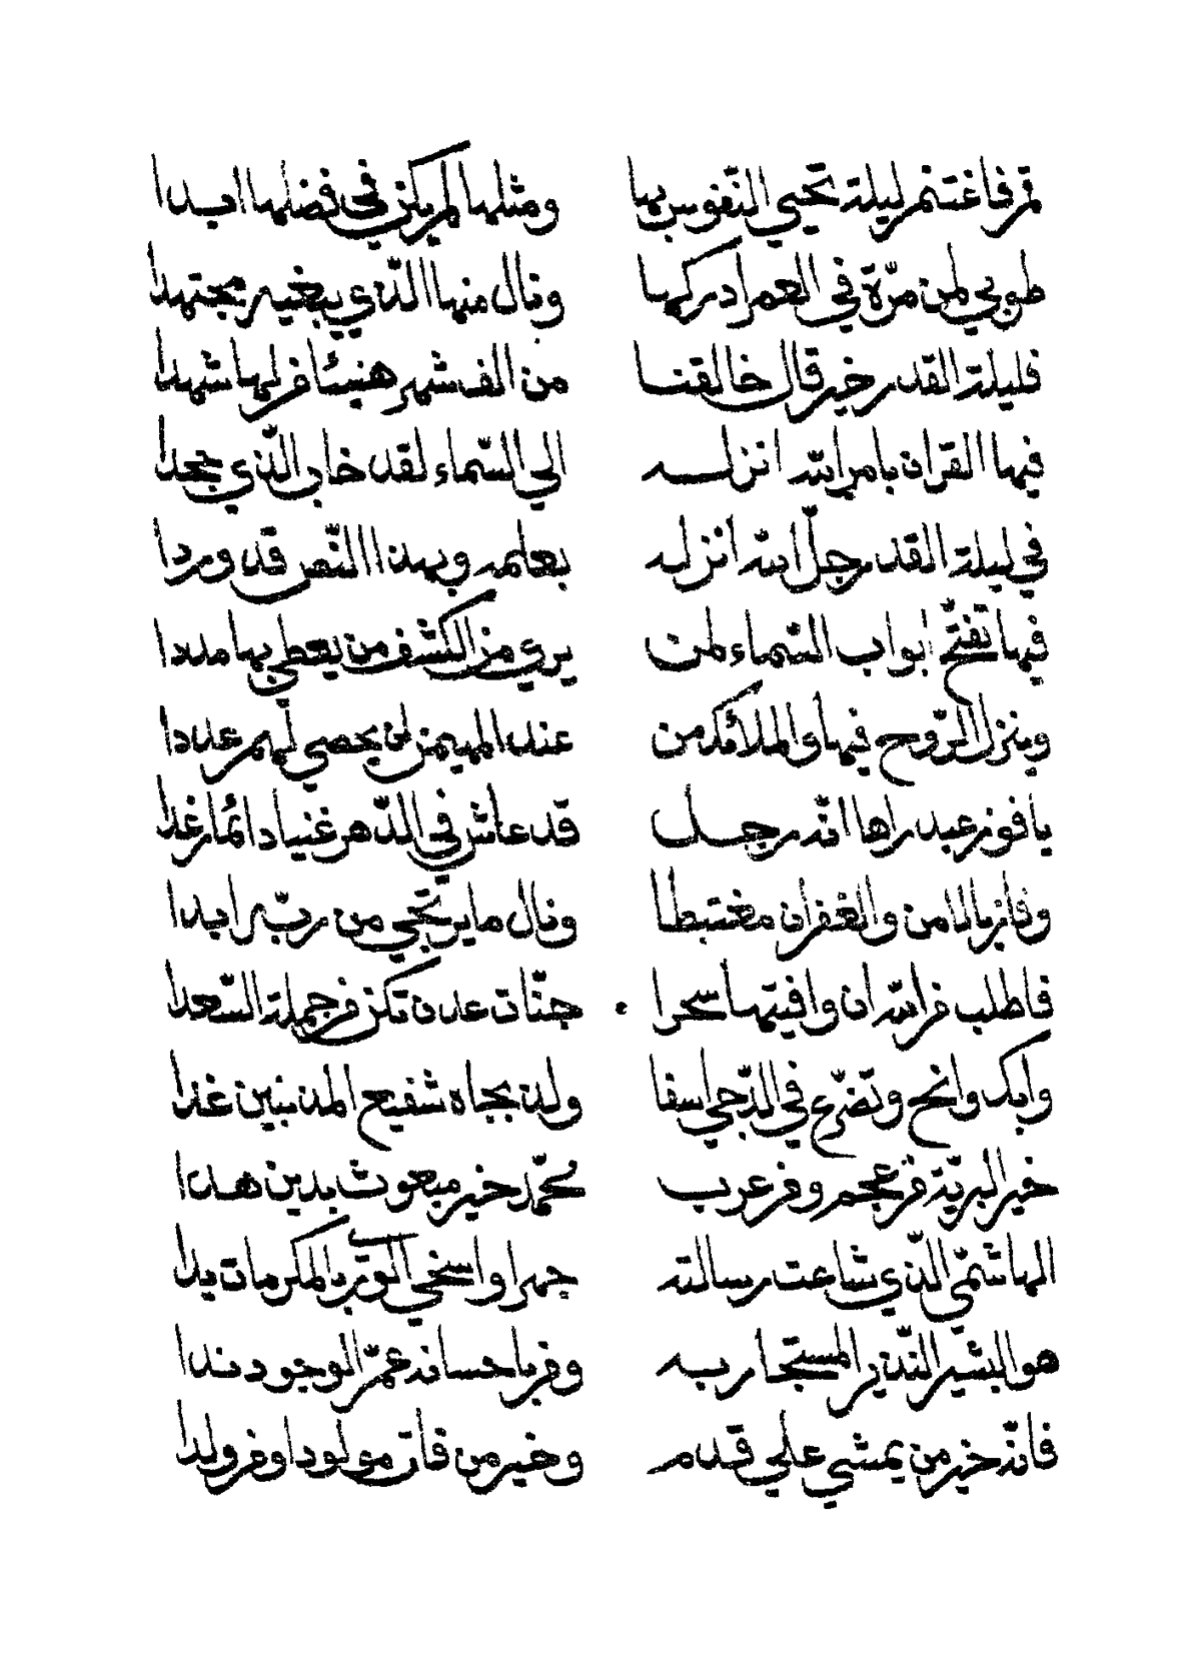 قم فاغتنم ليلة تحيي النّفوس بها ومثلها لم يكن في فضلها ابدا
طوبي لمن مرّة في العمر ادركها ونال منها الّذي يبغيه مجتهدا
فليلة القدر خير قال خالقنا من الف شهر هنيئا من لها شهدا
فيها القران بامر الله انزله الي السّماء لقد خاب الّذي جحدا
في ليلة القدر جلّ الله انزله بعلمه وبهذا النّص قد وردا
فيها تفتّح ابواب السّماء لمن يري من الكشف من يعطي بها مددا
وينزل الرّوح فيها والملائكه من عند المهيمن لن يحصي لهم عددا
يا فوز عبد راها انّه رجل قد عاش في الدّهر غنيا دائما رغدا
وفاز بالامن والغفران مغتبطا ونال ما يرتجي من ربّه ابدا
فاطلب من الله ان وافيتها سحرا جنّات عدن تكن من جملة السّعدا
وابك وانح وتضرّع في الدّجي اسفا ولذ بجاه شفيع المذنبين غدا
خير البريّة من عجم ومن عرب محمّد خير مبعوث بدين هدا
الهاشميّ الّذي شاعت رسالته جهرا واسخي الوري بالمكرمات يدا
هو البشير النّذير المستجار به ومن باحسانه عمّ الوجود ندا
فانّه خير من يمشي علي قدم وخير من فاق مولودا ومن ولدا